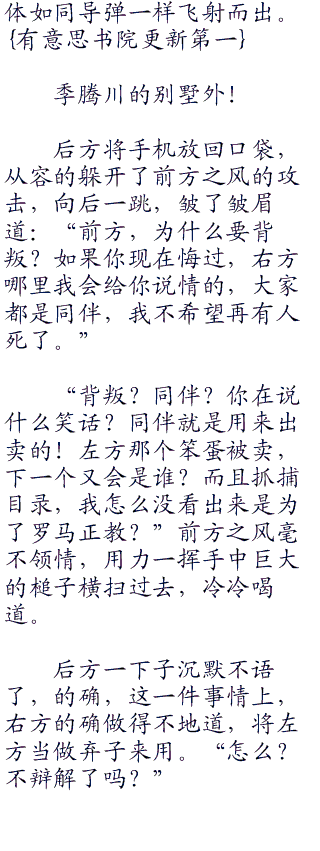 体如同导弹一样飞射而出。
{有意思书院更新第一}
季腾川的别墅外！
后方将手机放回口袋，
从容的躲开了前方之风的攻
击，向后一跳，皱了皱眉
道：“前方，为什么要背
叛？如果你现在悔过，右方
哪里我会给你说情的，大家
都是同伴，我不希望再有人
死了。”
“背叛？同伴？你在说
什么笑话？同伴就是用来出
卖的！左方那个笨蛋被卖，
下一个又会是谁？而且抓捕
目录，我怎么没看出来是为
了罗马正教？”前方之风毫
不领情，用力一挥手中巨大
的槌子横扫过去，冷冷喝
道。
后方一下子沉默不语
了，的确，这一件事情上，
右方的确做得不地道，将左
方当做弃子来用。“怎么？
不辩解了吗？”